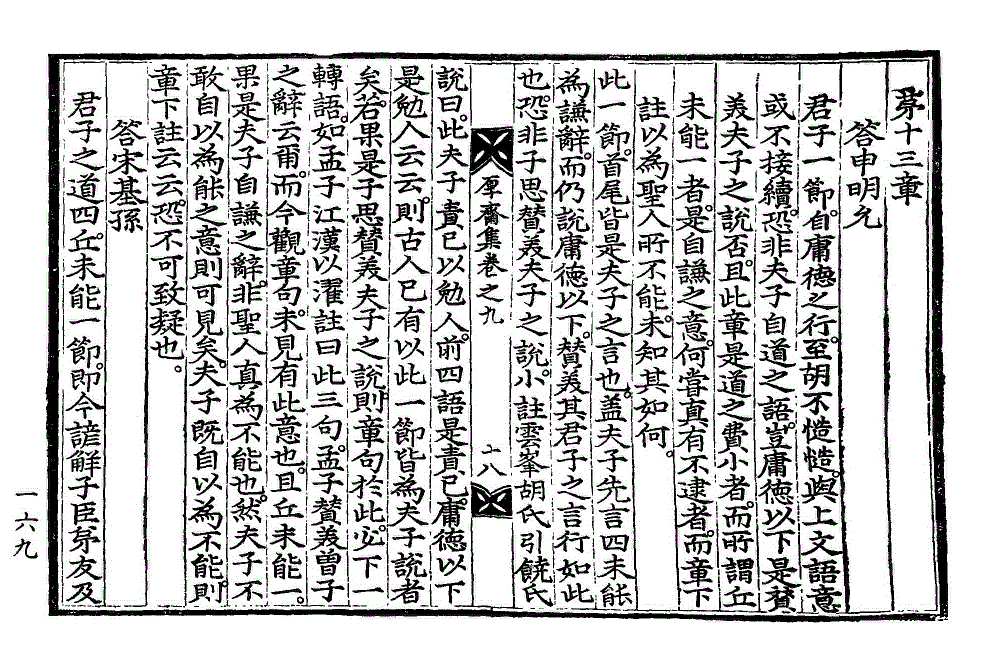 第十三章
答申明允
君子一節。自庸德之行。至胡不慥慥。與上文語意
或不接續。恐非夫子自道之語。豈庸德以下。是贊
羙夫子之說否。且此章是道之費小者。而所謂丘
未能一者。是自謙之意。何嘗眞有不逮者。而章下
註以為聖人所不能。未知其如何。
此一節。首尾皆是夫子之言也。盖夫子先言四未能
為謙辭。而仍說庸德以下。贊羙其君子之言行如此
也。恐非子思贊羙夫子之說。小註雲峯胡氏引饒氏
厚齋集卷之九
十八
說曰。此夫子責已以勉人。前四語是責已。庸德以下
是勉人云云。則古人已有以此一節皆為夫子說者
矣。若果是子思贊羙夫子之說。則章句於此。必下一
轉語。如孟子江漢以濯註曰此三句。孟子贊羙曾子
之辭云爾。而今觀章句。未見有此意也。且丘未能一。
果是夫子自謙之辭。非聖人眞為不能也。然夫子不
敢自以為能之意則可見矣。夫子旣自以為不能。則
章下註云云。恐不可致疑也。
答宋基孫
君子之道四。丘未能一節。即今諺解子臣弟友及
一六九